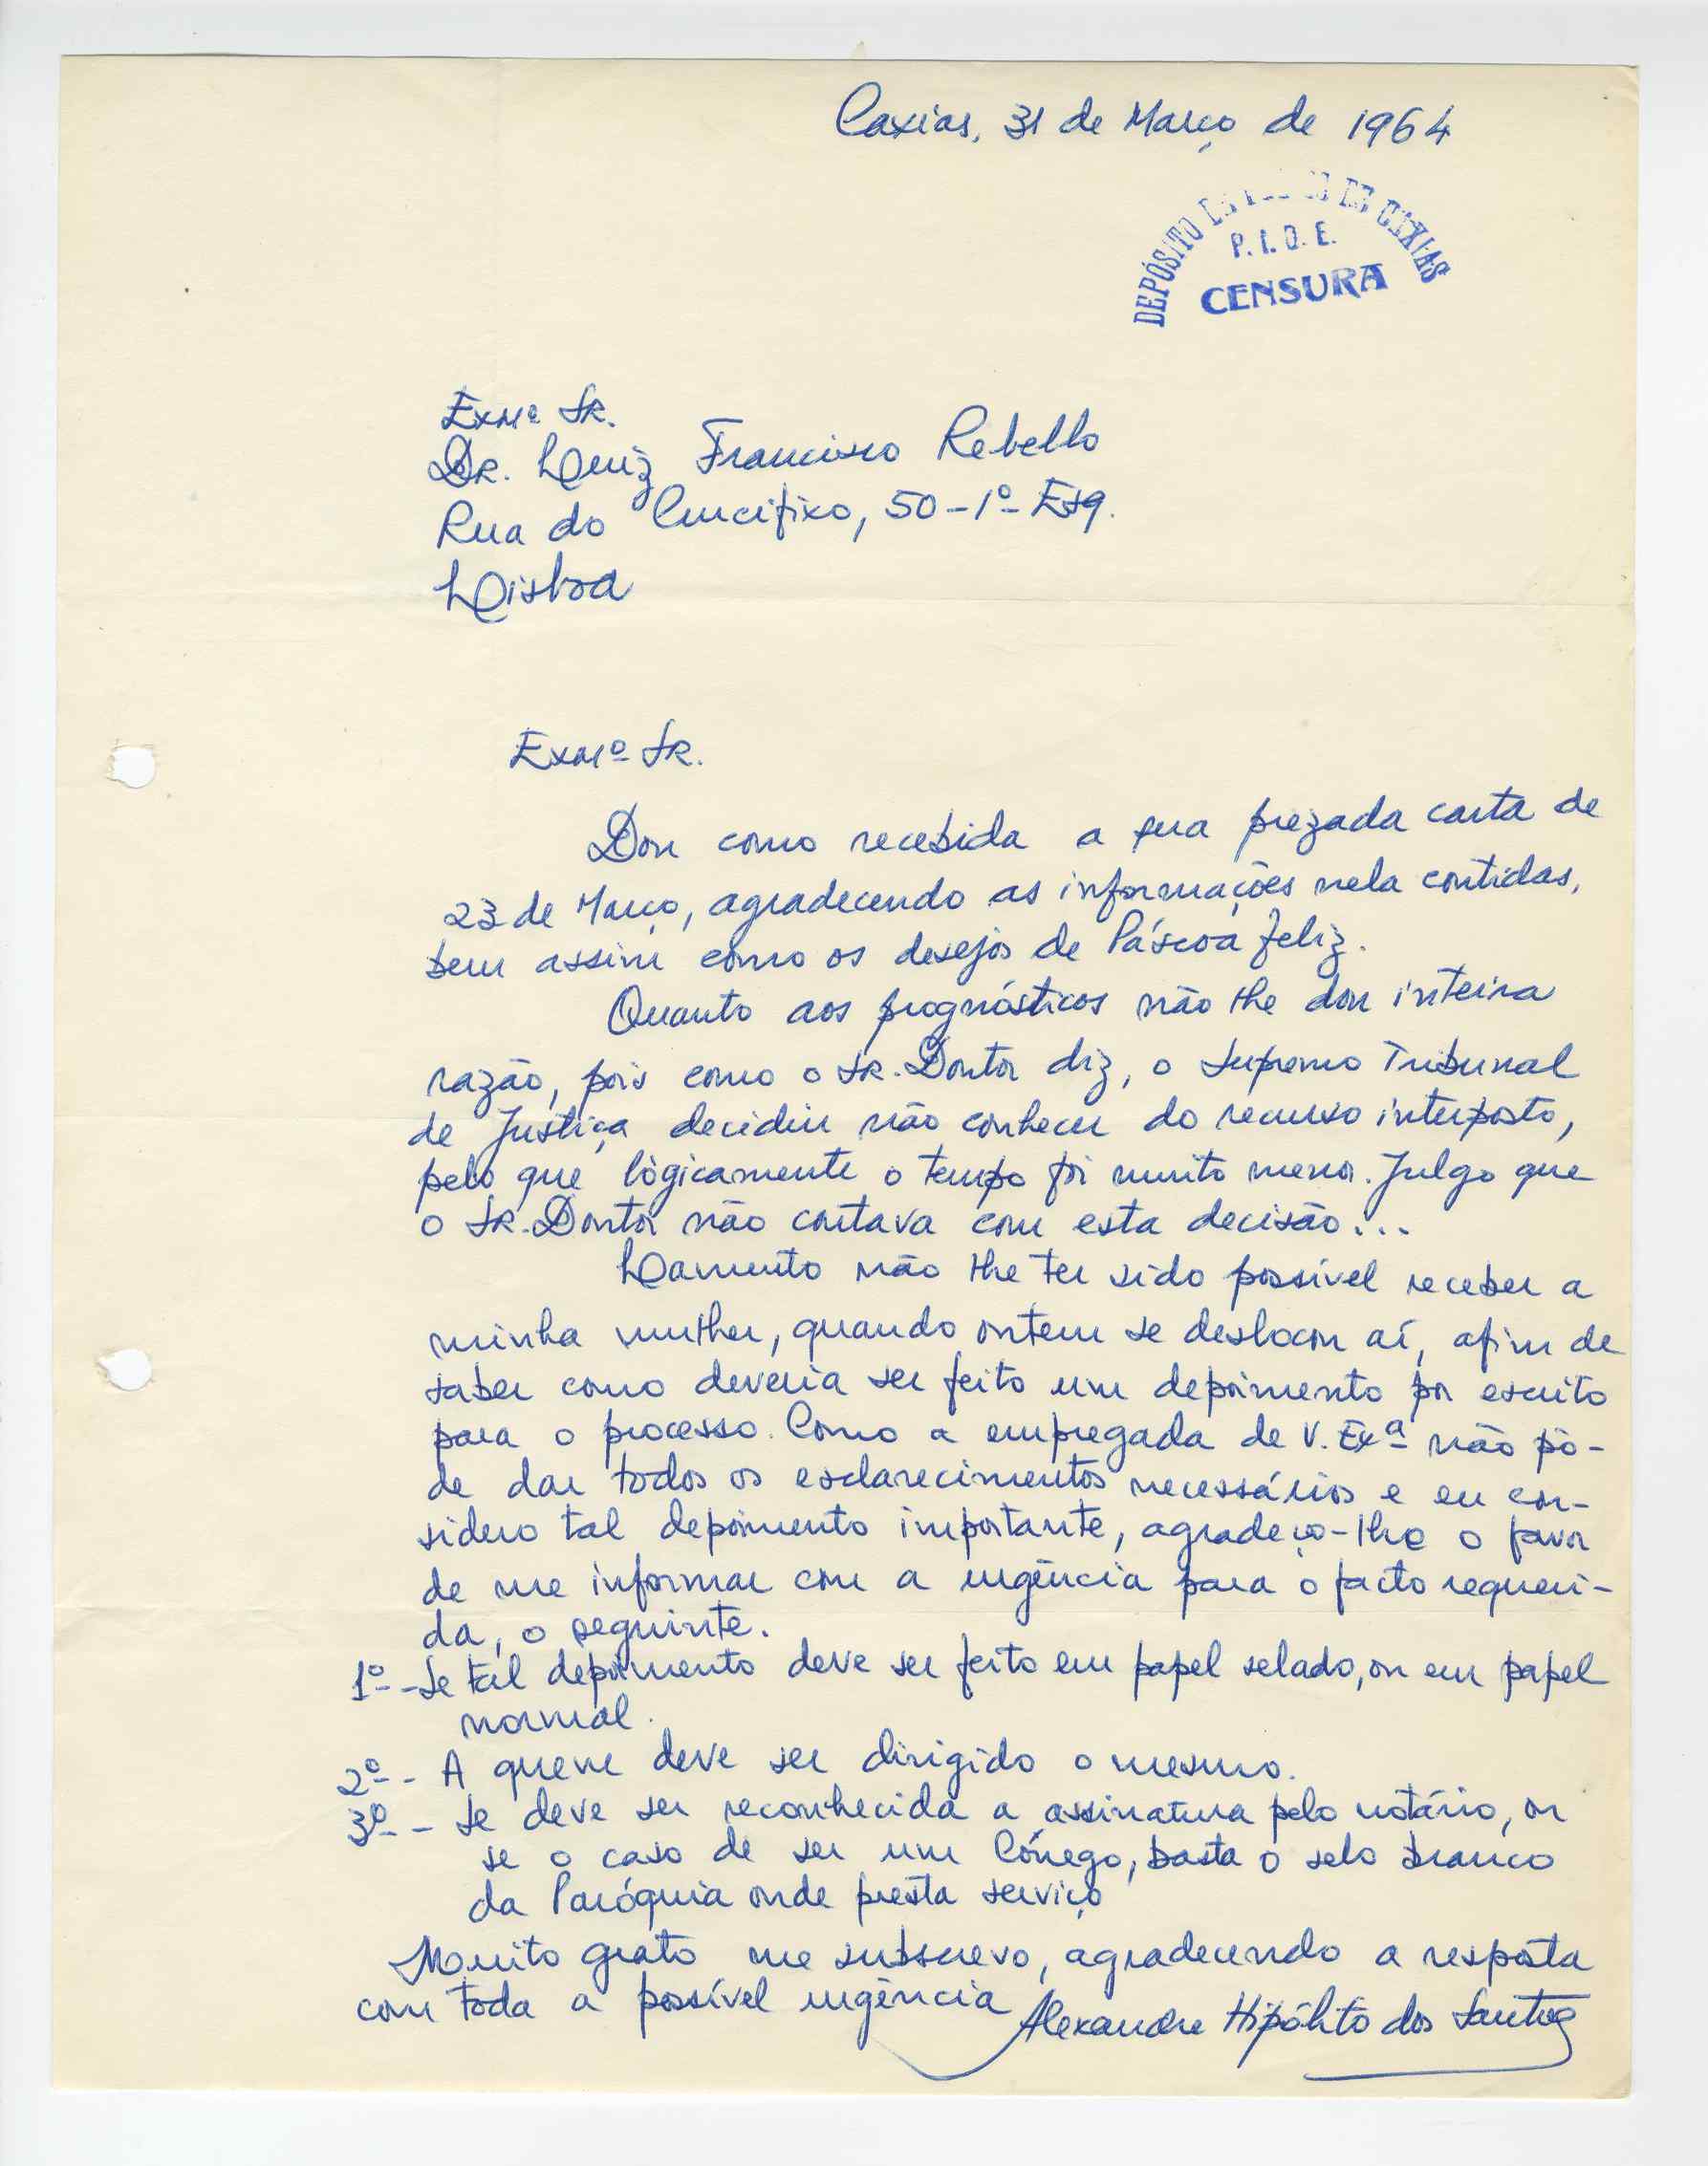 Caxias, 31 de Março de 1964
DEPÓSITO DE CAXIAS
P.I.D.E.
CENSURA
Exmº SR.
DR. Luiz Francisco Rebello
Rua do Crucifixo, 50-1º Esq.
Lisboa
Exmº SR.
Dou como recebida a sua prezada carta de
23 de Março, agradecendo as informações nela contidas,
bem assim como os desejos de Páscoa feliz.
Quanto aos prognósticos não lhe dou inteira
razão, pois como o SR. Doutor diz, o Supremo Tribunal
de Justiça decidiu não conhecer do recurso interposto,
pelo que lògicamente o tempo foi muito menor. Julgo que
o SR. Doutor não contava com esta decisão...
Lamento não lhe ter sido possível receber a
minha mulher, quando ontem se deslocou aí, afim de
saber como deveria ser feito um depoimento por escrito
para o processo. Como a empregada de V. Exª não pô-
de dar todos os esclarecimentos necessários e eu con-
sidero tal depoimento importante, agradeço-lhe o favor
de me informar com a urgência para o facto requeri-
da, o seguinte.
1º - Se tal depoimento deve ser feito em papel selado, ou em papel
normal.
2º - A quem deve ser dirigido o mesmo.
3º - Se deve ser reconhecida a assinatura pelo notário, ou
se o caso de ser um Cónego, basta o selo branco
da Paróquia onde presta serviço
Muito grato me subscrevo, agradecendo a resposta
com toda a possível urgência
Alexandre Hipólito dos Santos